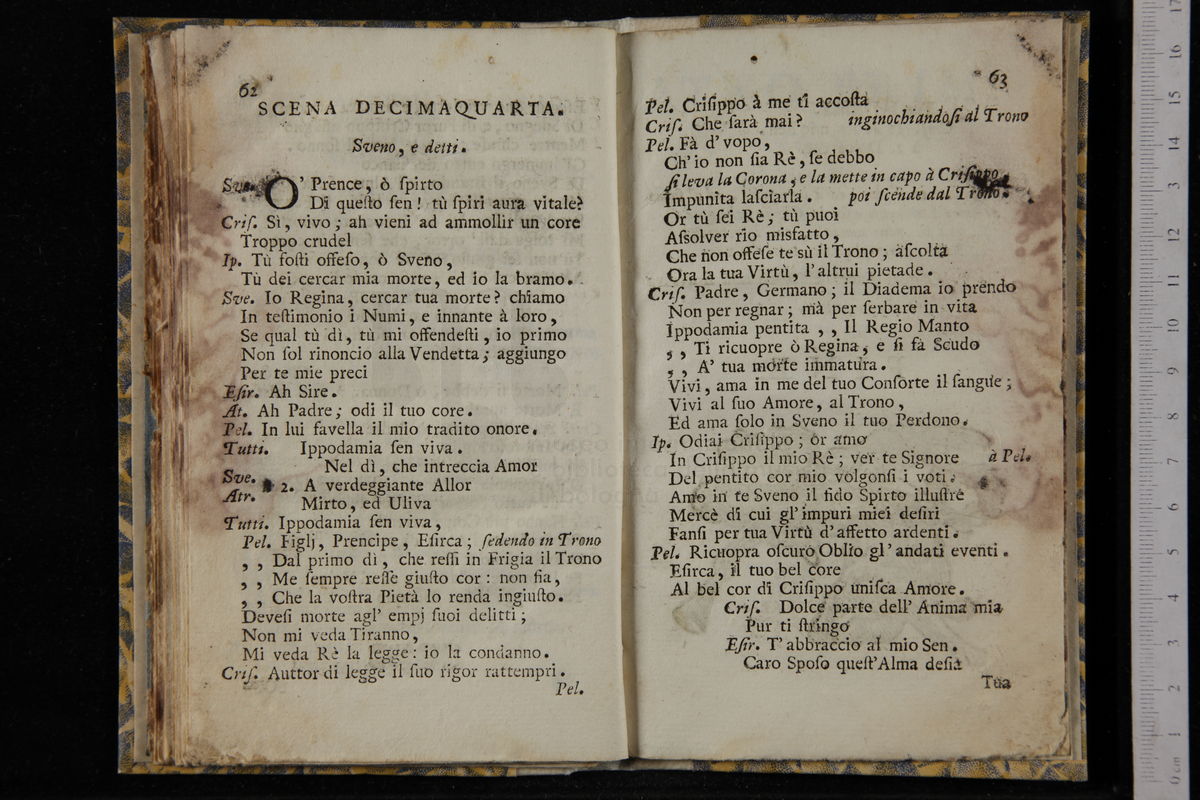 62
SCENA DECIMAQUARTA.
Sveno, e detti.
Sve. O' Prence, ò ſpirto
Di queſto ſen! tù ſpiri aura vitale?
Criſ. Sì, vivo; ah vieni ad ammollir un core
Troppo crudel
Ip. Tù foſti offeſo, ò Sveno,
Tù dei cercar mia morte, ed io la bramo.
Sve. Io Regina, cercar tua morte? chiamo
In teſtimonio i Numi, e innante à loro,
Se qual tù dì, tù mi offendeſti, io primo
Non ſol rinoncio alla Vendetta; aggiungo
Per te mie preci
Eſir. Ah Sire.
At. Ah Padre; odi il tuo core.
Pel. In lui favella il mio tradito onore.
Tutti. Ippodamia ſen viva.
Nel dì, che intreccia Amor
Sve.
Atr. 2. A verdeggiante Allor
Mirto, ed Uliva
Tutti. Ippodamia ſen viva,
Pel. Figlj, Prencipe, Eſirca; ſedendo in Trono
, , Dal primo dì, che reſſi in Frigia il Trono
, , Me ſempre reſſe giuſto cor: non ſia,
, , Che la voſtra Pietà lo renda ingiuſto.
Deveſi morte agl' empj ſuoi delitti;
Non mi veda Tiranno,
Mi veda Rè la legge: io la condanno.
Criſ. Auttor di legge il ſuo rigor rattempri.
Pel.
63
Pel. Criſippo à me ti accoſta
Criſ. Che ſarà mai? inginochiandoſi al Trono
Pel. Fà d' vopo,
Ch' io non ſia Rè, ſe debbo
ſi leva la Corona, e la mette in capo à Criſippo
Impunita laſciarla. poi ſcende dal Trono.
Or tù ſei Rè; tù puoi
Aſsolver rio misfatto,
Che non offeſe te sù il Trono; aſcolta
Ora la tua Virtù, l' altrui pietade.
Criſ. Padre, Germano; il Diadema io prendo
Non per regnar; mà per ſerbare in vita
Ippodamia pentita , , Il Regio Manto
, , Ti ricuopre ò Regina, e ſi fà Scudo
, , A' tua morte immatura.
Vivi, ama in me del tuo Conſorte il ſangue;
Vivi al ſuo Amore, al Trono,
Ed ama ſolo in Sveno il tuo Perdono.
Ip. Odiai Criſippo; òr amo
In Criſippo il mio Rè; ver te Signore à Pel.
Del pentito cor mio volgonſi i voti.
Amo in te Sveno il fido Spirto illuſtre
Mercè di cui gl' impuri miei deſiri
Fanſi per tua Virtù d' affetto ardenti.
Pel. Ricuopra oſcuro Oblio gl' andati eventi.
Eſirca, il tuo bel core
Al bel cor di Criſippo uniſca Amore.
Criſ. Dolce parte dell' Anima mia
Pur ti ſtringo
Eſir. T' abbraccio al mio Sen.
Caro Spoſo queſt' Alma deſia
Tua
0 cm 1 2 3 4 5 6 7 8 9 10 11 12 13 14 15 16 17